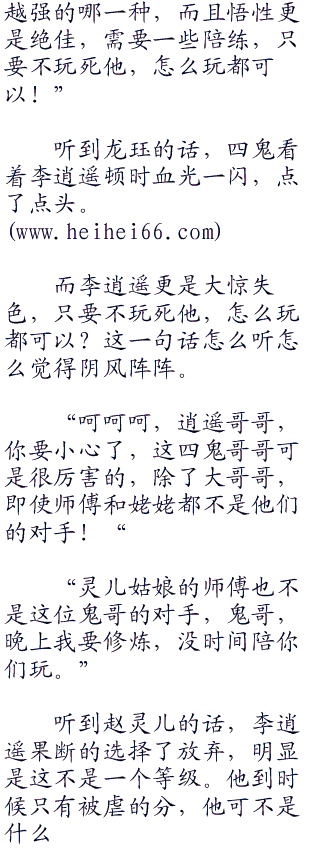 越强的哪一种，而且悟性更
是绝佳，需要一些陪练，只
要不玩死他，怎么玩都可
以！”
听到龙珏的话，四鬼看
着李逍遥顿时血光一闪，点
了点头。
(www.heihei66.com)
而李逍遥更是大惊失
色，只要不玩死他，怎么玩
都可以？这一句话怎么听怎
么觉得阴风阵阵。
“呵呵呵，逍遥哥哥，
你要小心了，这四鬼哥哥可
是很厉害的，除了大哥哥，
即使师傅和姥姥都不是他们
的对手！“
“灵儿姑娘的师傅也不
是这位鬼哥的对手，鬼哥，
晚上我要修炼，没时间陪你
们玩。”
听到赵灵儿的话，李逍
遥果断的选择了放弃，明显
是这不是一个等级。他到时
候只有被虐的分，他可不是
什么